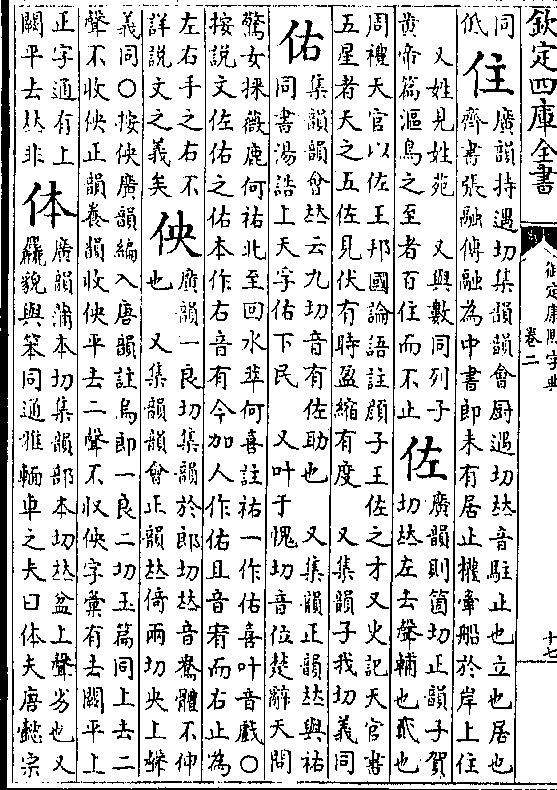 欽定四庫全書
御定康熙字典
卷二
十七
同
低
住
廣韻持遇切集韻韻會厨遇切𠀤音駐止也立也居也
齊書張融傳融為中書郎未有居止權牽船於岸上住
又姓見姓苑　又與數同列子
黄帝篇漚鳥之至者百住而不止
佐
廣韻則箇切正韻子賀
切𠀤左去聲輔也貳也
周禮天官以佐王邦國論語註顔子王佐之才又史記天官書
五星者天之五佐見伏有時盈縮有度　又集韻子我切義同
佑
集韻韻會𠀤云九切音有佐助也　又集韻正韻𠀤與祐
同書湯誥上天孚佑下民　又叶于愧切音位楚辭天問
驚女采薇鹿何祐北至回水萃何喜註祐一作佑喜叶音戲○
按說文佐佑之佑本作右音有今加人作佑且音宥而右止為
左右手之右不
詳說文之義矣
佒
廣韻一良切集韻於郎切𠀤音鴦體不伸
也　又集韻韻會正韻𠀤倚兩切央上聲
義同○按佒廣韻編入唐韻註烏郎一良二切玉篇同上去二
聲不收佒正韻養韻收佒平去二聲不収佒字彙有去闕平上
正字通有上
闕平去𠀤非
体
廣韻蒲本切集韻部本切𠀤盆上聲劣也又
麤貌與笨同通雅輀車之夫曰体夫唐懿宗